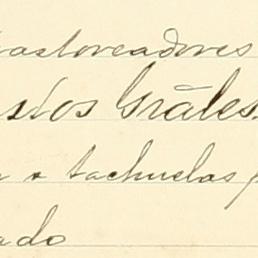 astoreadores
stos Gráles
a o tachuelas p
ado